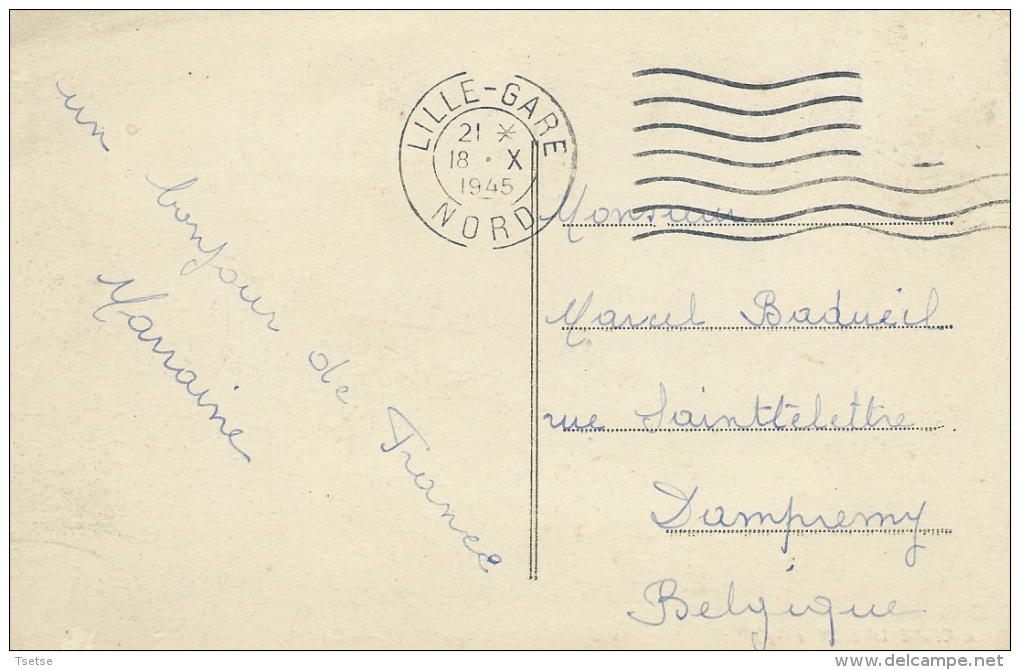 un bonjour de France
Marraine
LILLE-GARE
21 *
18 · X
1945
NORD
Monsieur
Marcel Badueil
rue Sainttelettre
Dampremy
Belgique
Tsetse
delcampe.net